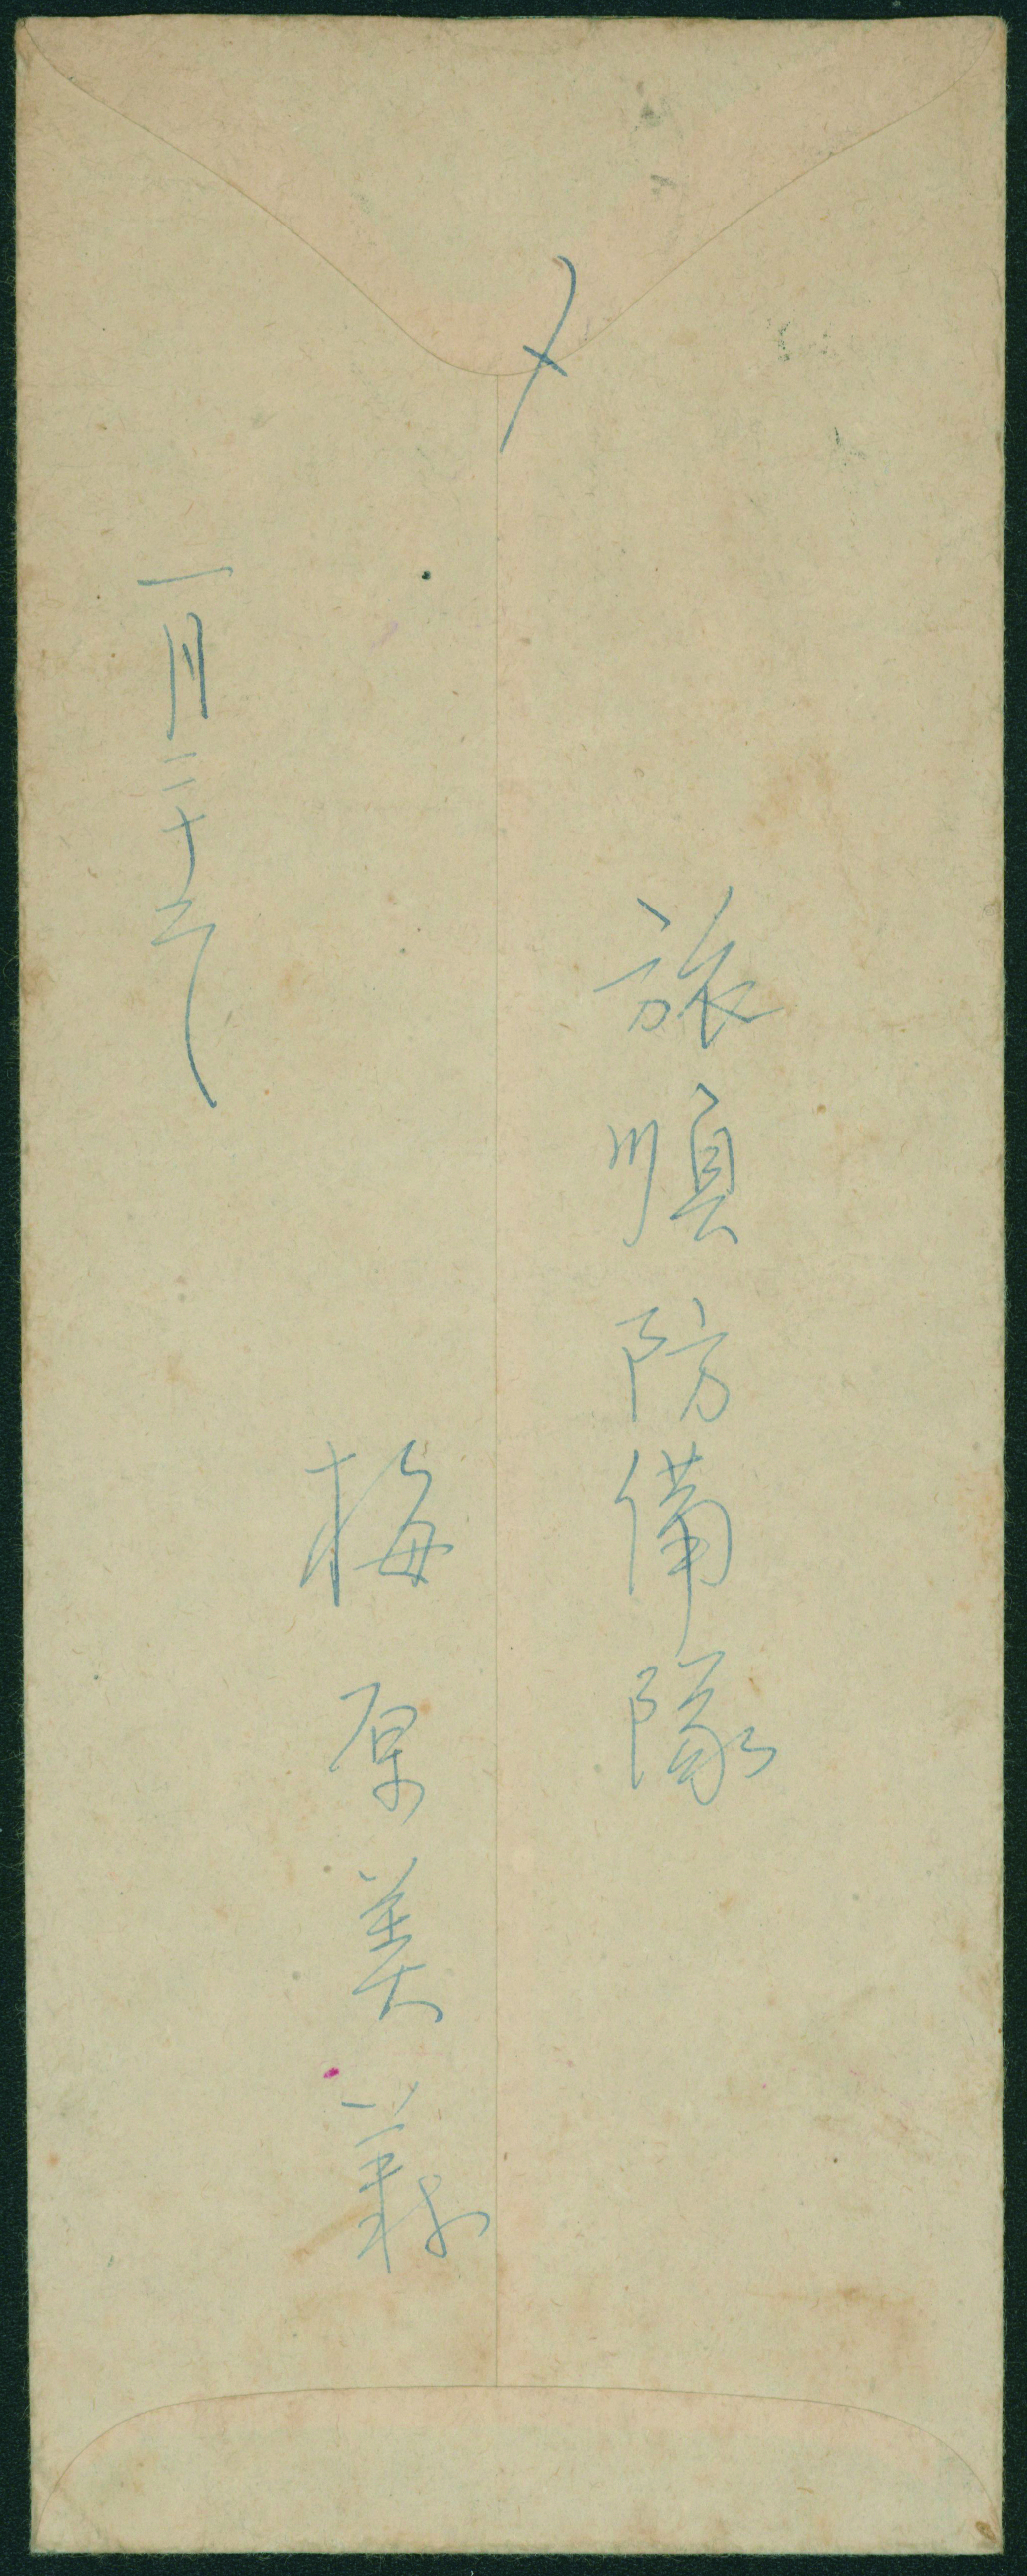 〆
旅順防備隊
梅原美義
一月二十六日